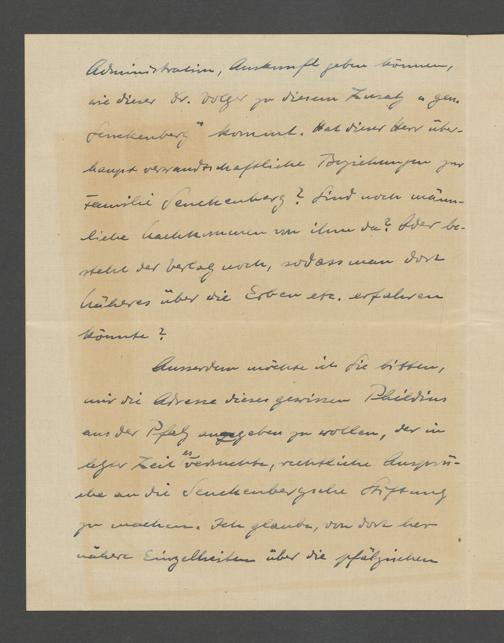 Administration, Auskunft geben können,
wie dieser Dr. Volger zu diesem Zusatz "gen.
Senckenberg" kommt. Hat dieser Herr über-
haupt verwandtschaftliche Beziehungen zur
Familie Senckenberg? Sind noch männ-
liche Nachkommen von ihm da? Oder be-
steht der Verlag noch, sodass man dort
Näheres über die Erben etc. erfahren
könnte?
Ausserdem möchte ich Sie bitten,
mir die Adresse dieses gewissen
aus der Pfalz angeben zu wollen, der in
letzter Zeit es versuchte, rechtliche Ansprü-
che an die Senckenbergsche Stiftung
zu machen. Ich glaube, von dort her
nähere Einzelheiten über die pfälzischen